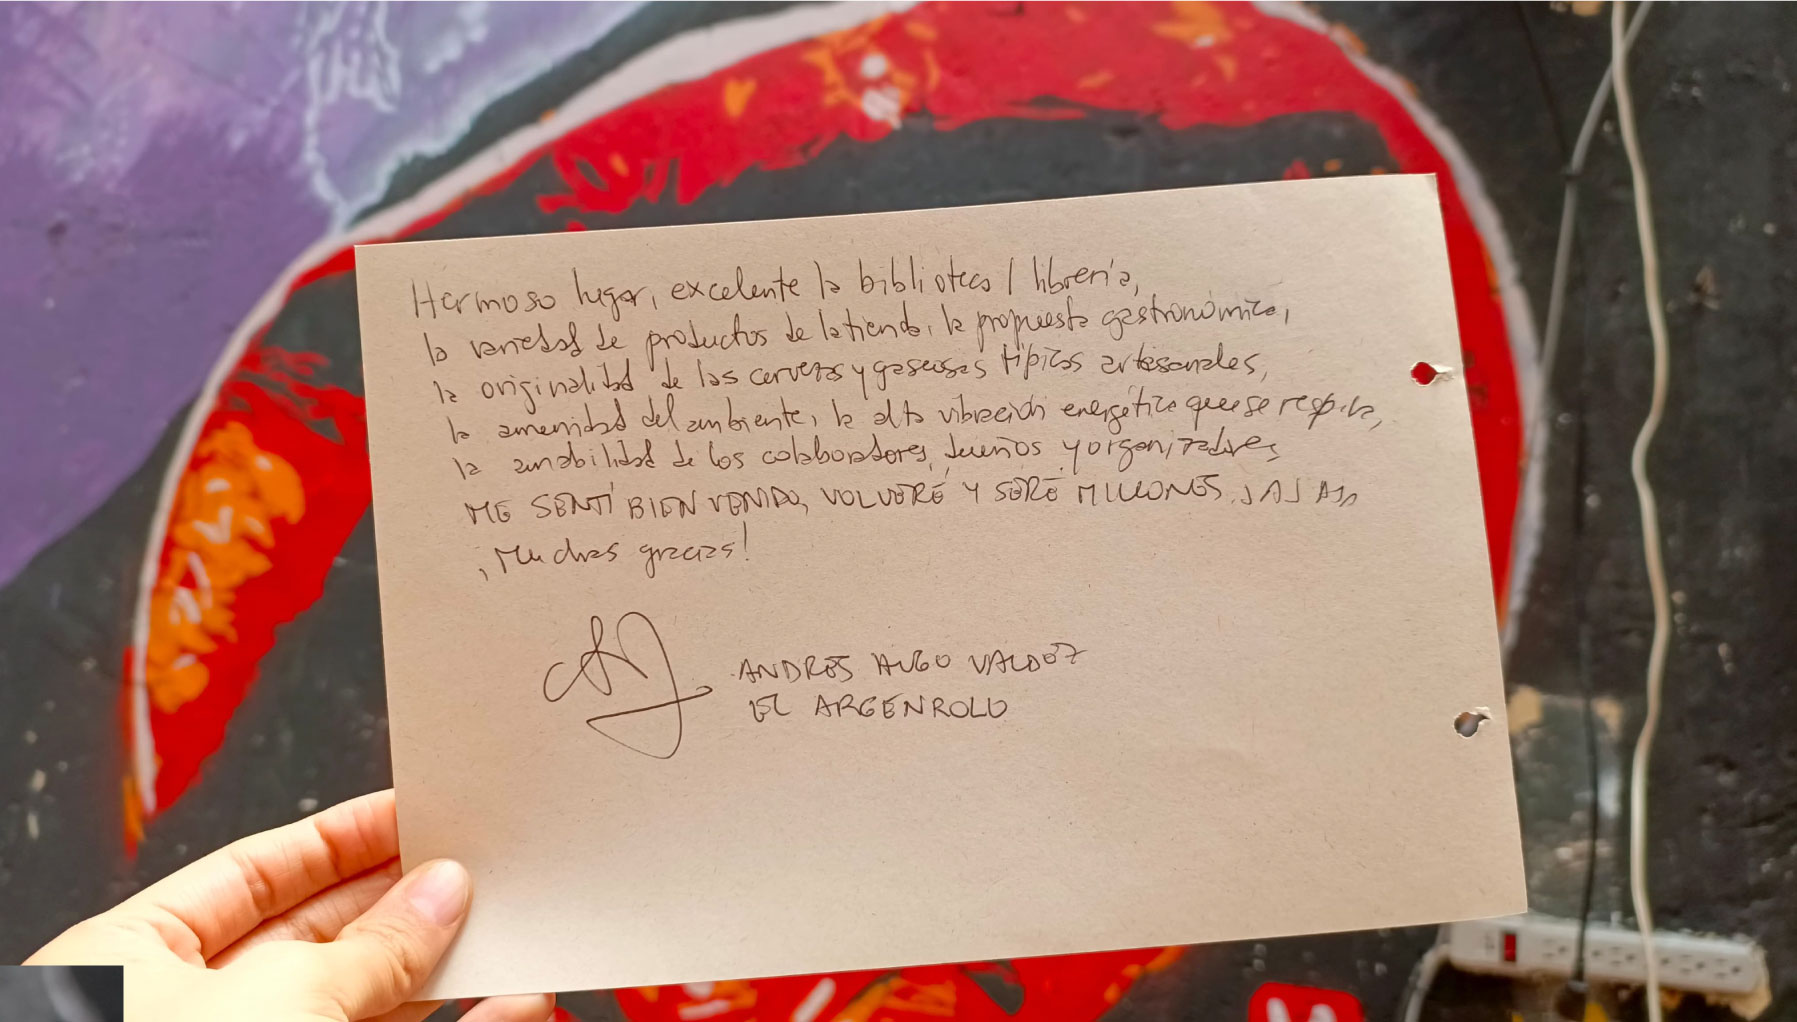 Hermoso lugar, excelente la biblioteca / librería,
la variedad de productos de la tienda, la propuesta gastronómica,
la originalidad de las cervezas y gaseosas típicas artesanales,
la amenidad del ambiente, la alta vibración energética que se respira,
la amabilidad de los colaboradores, dueños y organizadores,
ME SENTÍ BIENVENIDO, VOLVERÉ Y SERÉ MILLONES. JAJAJA
¡Muchas gracias!
ANDRÉS HUGO VALDEZ
EL ARGENROLO